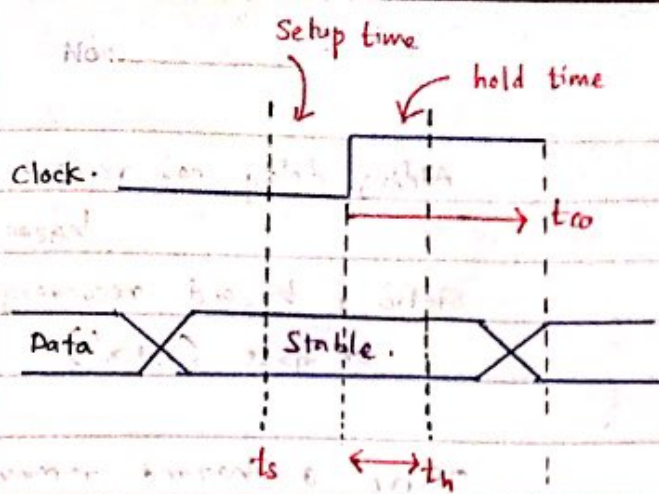 Setup time
No:
hold time
Clock.
tco
Data
Stable.
ts
th